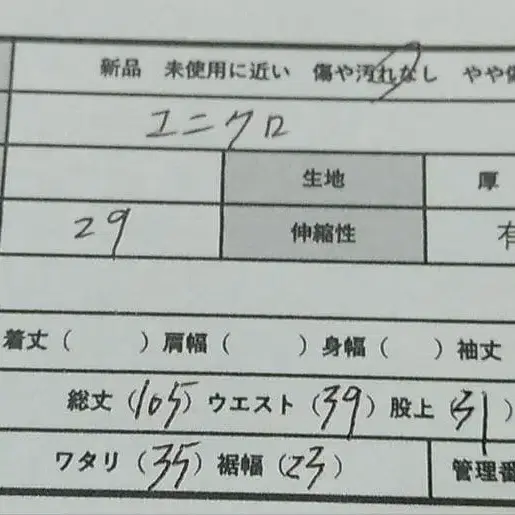 新品 未使用に近い 傷や汚れなし やや傷
ユニクロ
生地 厚
29 伸縮性 有
着丈( )肩幅( )身幅( )袖丈
総丈(105)ウエスト(39)股上(31)
ワタリ(35)裾幅(23) 管理番